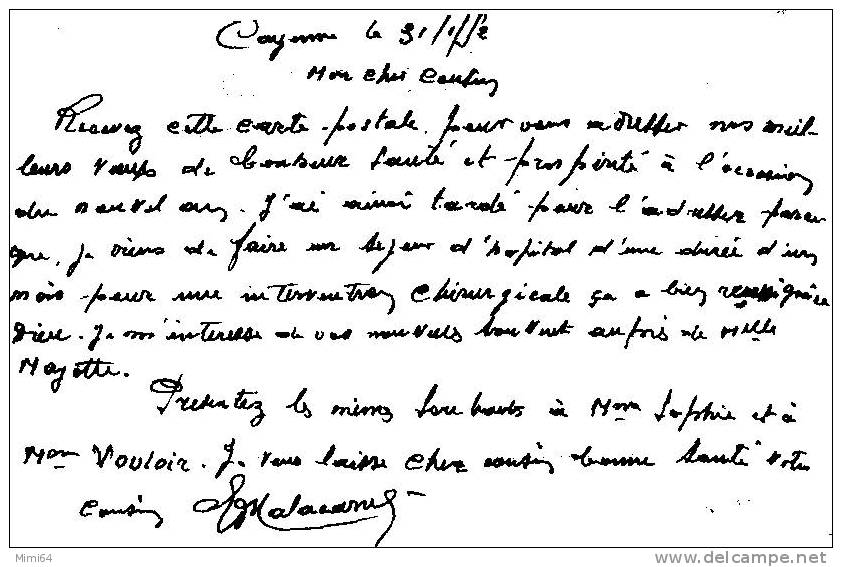 Cayenne le 31/1/52
Mon cher Cousin
Recevez cette carte postale, pour vous adresser nos meil-
leurs vœux de bonheur santé et prospérité à l'occasion
du nouvel an. J'ai ainsi tardé pour l'adresser parce
que, je viens de faire un sejour d'hopital d'une durée d'un
mois pour une intervention chirurgicale ça a bien reussi grâce
Dieu. Je m'interesse de vos nouvels souvent aupres de Melle
Mayotte.
Presentez les mêmes souhaits à Mme Sophie et à
Mme Vouloir. Je vous laisse cher cousin bonne santé votre
cousin
Mimi64
www.delcampe.net